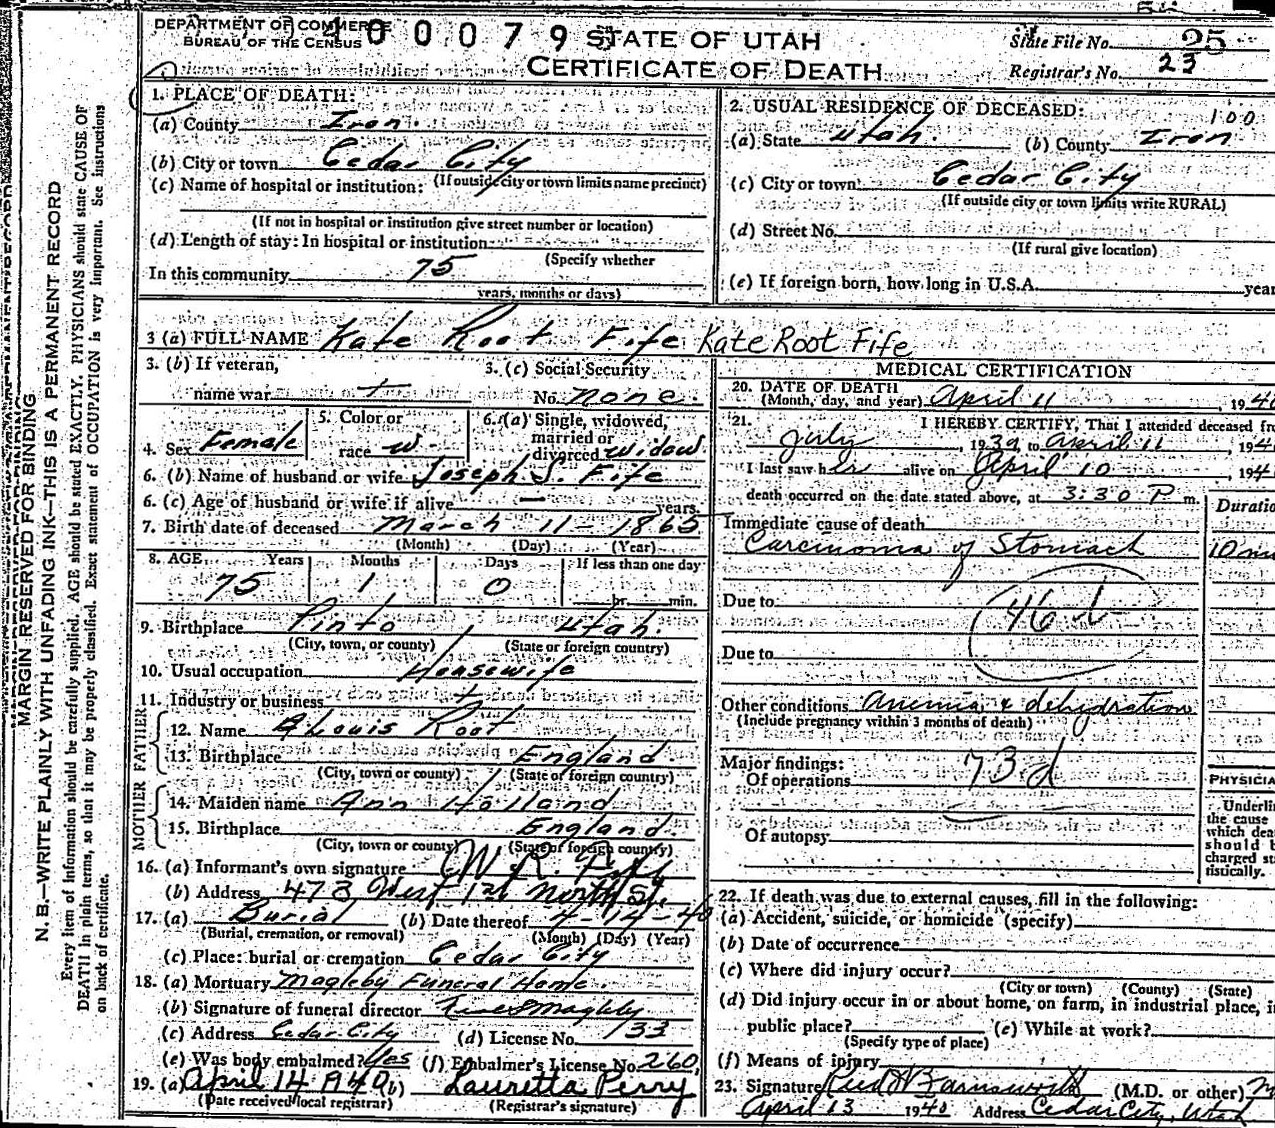 DEPARTMENT OF COMMERCE
BUREAU OF THE CENSUS
400079
STATE OF UTAH
CERTIFICATE OF DEATH
State File No. 25
Registrar's No. 23
1. PLACE OF DEATH:
(a) County Iron.
(b) City or town Cedar City
(If outside city or town limits name precinct)
(c) Name of hospital or institution:
(If not in hospital or institution give street number or location)
(d) Length of stay: In hospital or institution
(Specify whether
In this community 75
years, months or days)
2. USUAL RESIDENCE OF DECEASED:
100
(a) State Utah. (b) County Iron
(c) City or town Cedar City
(If outside city or town limits write RURAL)
(d) Street No.
(If rural give location)
(e) If foreign born, how long in U.S.A. year
3 (a) FULL NAME Kate Root Fife Kate Root Fife
3. (b) If veteran,
name war
3. (c) Social Security
No. none.
4. Sex Female
5. Color or
race w.
6. (a) Single, widowed,
married or
divorced widow
6. (b) Name of husband or wife Joseph S. Fife
6. (c) Age of husband or wife if alive — years.
7. Birth date of deceased March - 11 - 1865
(Month) (Day) (Year)
8. AGE Years Months Days If less than one day
75 1 0 hr. min.
9. Birthplace Pinto Utah.
(City, town, or county) (State or foreign country)
10. Usual occupation Housewife
11. Industry or business
FATHER
12. Name Louis Root
13. Birthplace England
(City, town or county) (State or foreign country)
MOTHER
14. Maiden name Ann Holland
15. Birthplace England.
(City, town or county) (State or foreign country)
16. (a) Informant's own signature W. R.
(b) Address 473 West 1st North St.
17. (a) Burial (b) Date thereof 4-14-40
(Burial, cremation, or removal) (Month) (Day) (Year)
(c) Place: burial or cremation Cedar City
18. (a) Mortuary Magleby Funeral Home.
(b) Signature of funeral director Magleby
(c) Address Cedar City (d) License No. 133
(e) Was body embalmed? Yes (f) Embalmer's License No. 260
19. (a) April 14 1940 (b) Lauretta Perry
(Date received local registrar) (Registrar's signature)
MEDICAL CERTIFICATION
20. DATE OF DEATH
(Month, day, and year) April 11, 1940
21. I HEREBY CERTIFY, That I attended deceased fro
July, 1939, to April 11, 194
I last saw her alive on April 10, 194
death occurred on the date stated above, at 3:30 P. m.
Duratio
Immediate cause of death
Carcinoma of Stomach 10 m
Due to
46 b
Due to
Other conditions Anemia & dehydration
(Include pregnancy within 3 months of death)
Major findings:
Of operations 73 d
Of autopsy
PHYSICIA
Underli
the cause
which dea
should b
charged st
tistically.
22. If death was due to external causes, fill in the following:
(a) Accident, suicide, or homicide (specify)
(b) Date of occurrence
(c) Where did injury occur?
(City or town) (County) (State)
(d) Did injury occur in or about home, on farm, in industrial place, i
public place? (e) While at work?
(Specify type of place)
(f) Means of injury
23. Signature Farnsworth (M.D. or other)
April 13 1940 Address Cedar City, Utah
MARGIN RESERVED FOR BINDING
N. B.—WRITE PLAINLY WITH UNFADING INK—THIS IS A PERMANENT RECORD
Every item of information should be carefully supplied. AGE should be stated EXACTLY. PHYSICIANS should state CAUSE OF
DEATH in plain terms, so that it may be properly classified. Exact statement of OCCUPATION is very important. See instructions
on back of certificate.